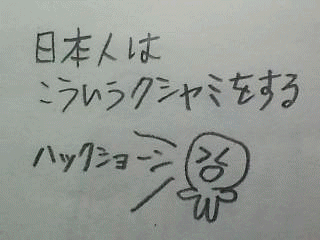 日本人は
こういうクシャミをする
ハックショーン